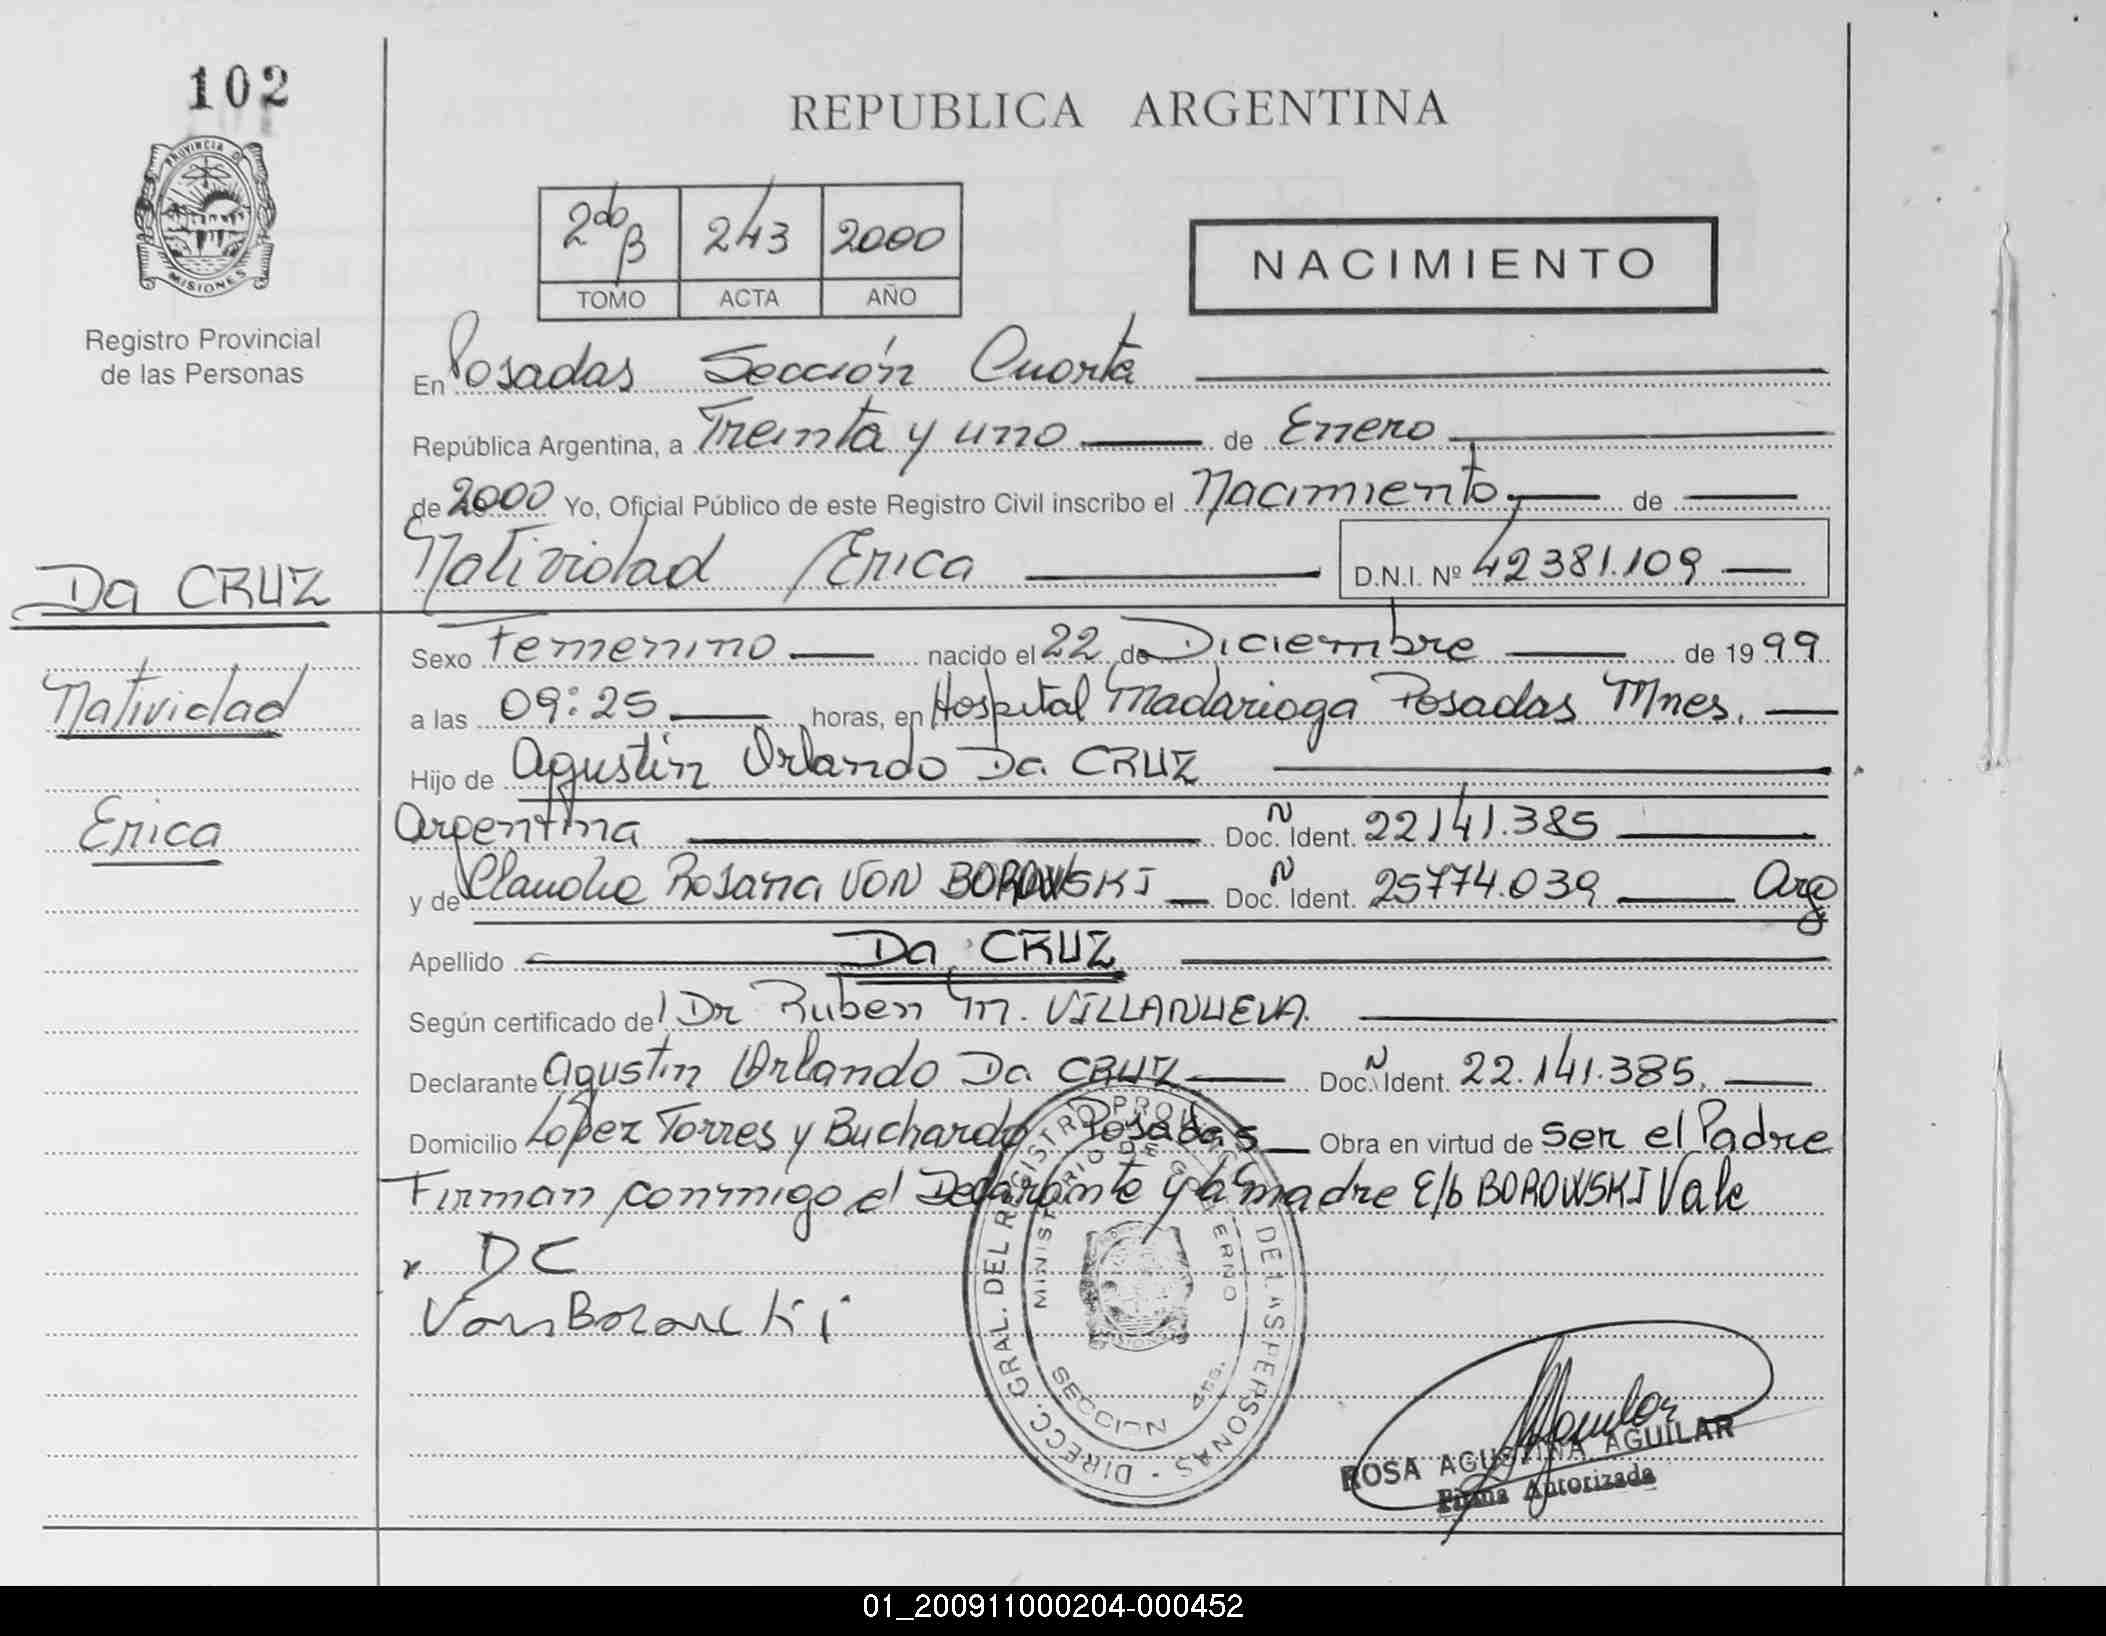 102
PROVINCIA D
MISIONES
Registro Provincial
de las Personas
REPUBLICA ARGENTINA
2do B 243 2000
TOMO ACTA AÑO
NACIMIENTO
En Posadas Sección Cuarta
República Argentina, a Treinta y uno de Enero
de 2000 Yo, Oficial Público de este Registro Civil inscribo el Nacimiento de
Natividad Erica D.N.I. Nº 42381.109
Da CRUZ
Natividad
Erica
Sexo Femenino nacido el 22 de Diciembre de 1999
a las 09:25 horas, en Hospital Madariaga Posadas Mnes.
Hijo de Agustin Orlando Da CRUZ
Argentina Doc. N Ident. 22141.385
y de Claudia Rosana VON BOROWSKI Doc. N Ident. 25774.039 Arg
Apellido Da CRUZ
Según certificado del Dr Ruben M. VILLANUEVA.
Declarante Agustin Orlando Da CRUZ Doc. N Ident. 22.141.385.
Domicilio López Torres y Buchardo Posadas Obra en virtud de ser el Padre
Firman conmigo el Declarante y la madre E/b BOROWSKI Vale
DC
Von Borowski
DIRECC. GRAL. DEL REGISTRO PROVINCIAL DE LAS PERSONAS
MINISTERIO DE GOBIERNO
SECCION 4ta.
ROSA AGUSTINA AGUILAR
Firma Autorizada
01_200911000204-000452